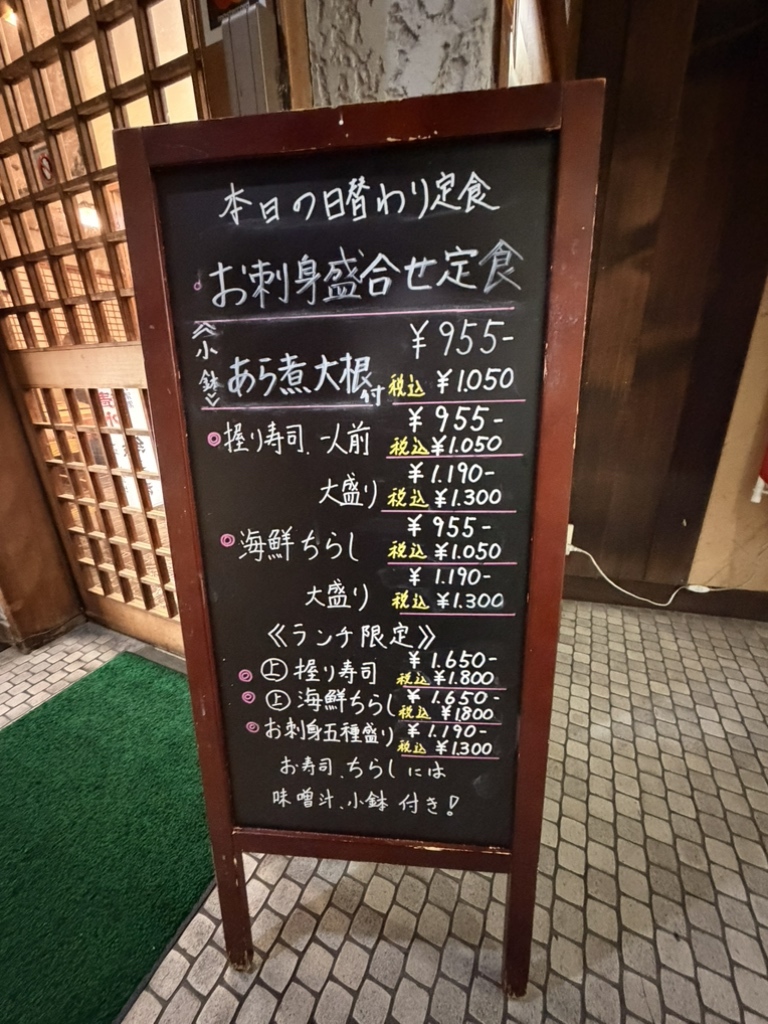 本日の日替わり定食
お刺身盛合せ定食
《小鉢》
あら煮大根付
¥955-
税込 ¥1.050
◎握り寿司、一人前
¥955-
税込 ¥1.050
大盛り
¥1.190-
税込 ¥1.300
◎海鮮ちらし
¥955-
税込 ¥1.050
大盛り
¥1.190-
税込 ¥1.300
《ランチ限定》
◎㊤握り寿司
¥1.650-
税込 ¥1.800
◎㊤海鮮ちらし
¥1.650-
税込 ¥1800
◎お刺身五種盛り
¥1.190-
税込 ¥1.300
お寿司、ちらしには
味噌汁、小鉢 付き!